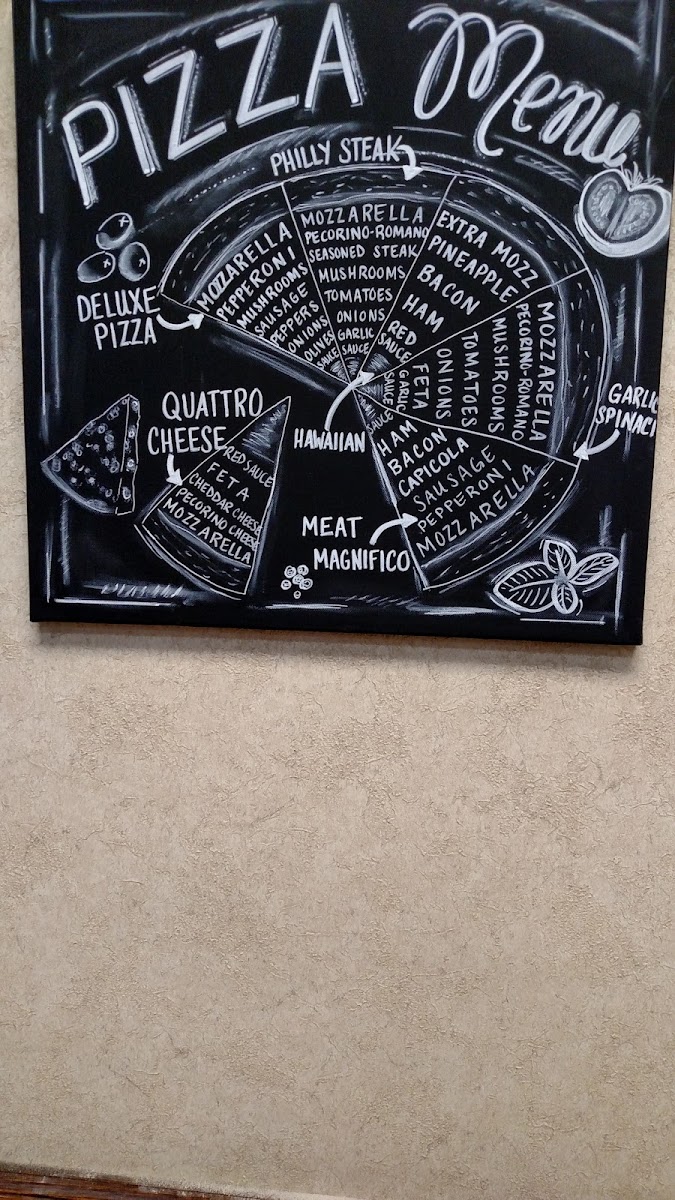 PIZZA Menu
PHILLY STEAK
MOZZARELLA
PECORINO-ROMANO
SEASONED STEAK
MUSHROOMS
TOMATOES
ONIONS
GARLIC
SAUCE
DELUXE
PIZZA
MOZZARELLA
PEPPERONI
MUSHROOMS
SAUSAGE
PEPPERS
ONIONS
OLIVES
SAUCE
EXTRA MOZZ
PINEAPPLE
BACON
HAM
RED
SAUCE
HAWAIIAN
MOZZARELLA
PECORINO-ROMANO
MUSHROOMS
TOMATOES
ONIONS
FETA
GARLIC
SAUCE
GARLIC
SPINAC
QUATTRO
CHEESE
RED SAUCE
FETA
CHEDDAR CHEESE
PECORINO CHEESE
MOZZARELLA
SAUCE
HAM
BACON
CAPICOLA
SAUSAGE
PEPPERONI
MOZZARELLA
MEAT
MAGNIFICO